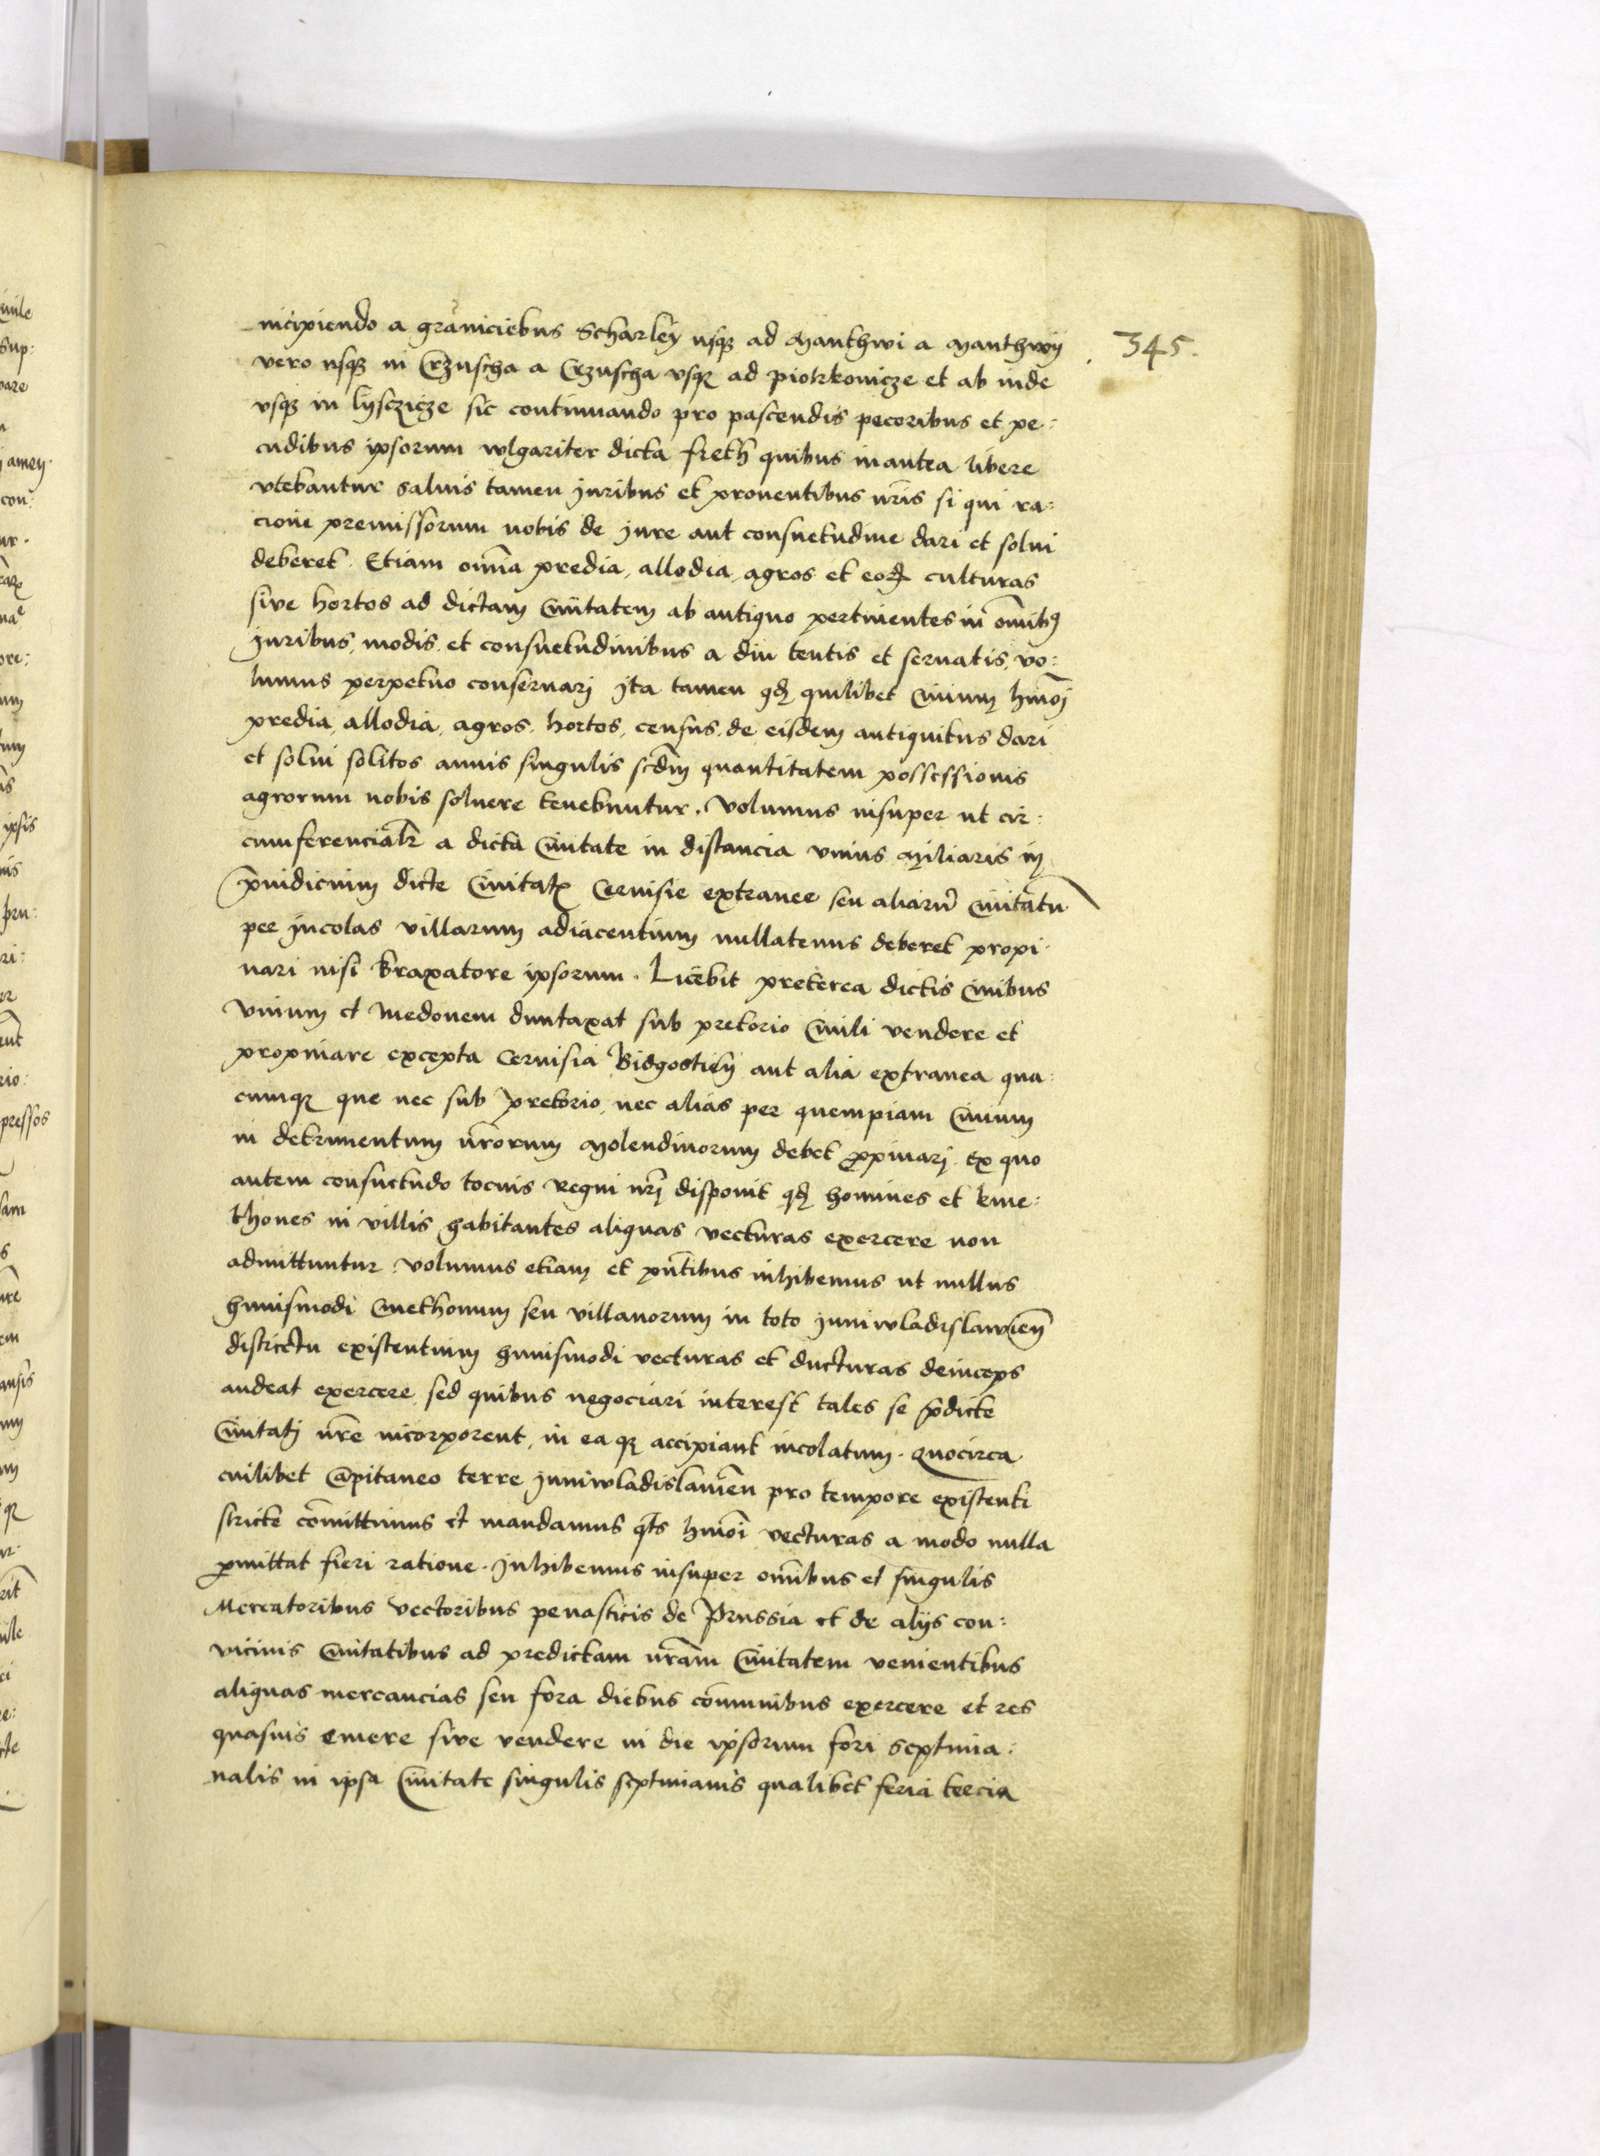 incipiendo a graniciebus Scharley usq3 ad Manthwi a Manthwy
345.
vero usq3 in Crzuscha a Crzuscha usq3 ad piotrkonicze et ab inde
usq3 in lysczicze sic continuando pro pascendis pecoribus et pe:
cudibus ipsorum wlgariter dicta freth quibus inantea libere
utebantur salvis tamen juribus et proventibus nr̄is si qui ra:
cione premissorum nobis de jure aut consuetudine dari et solui
deberet. Etiam om̄ia predia, allodia, agros et eorꝝ culturas
sive hortos ad dictam Ciuitatem ab antiquo pertinentes in om̄ibꝰ
juribus, modis et consuetudinibus a diu tentis et seruatis, vo:
lumus perpetuo conseruari ita tamen qd̄ quilibet Ciuium hm̄oi
predia, allodia, agros, hortos, census, de eisdem antiquitus dari
et solui solitos annis singulis scd̄m quantitatem possessionis
agrorum nobis soluere tenebuntur. Volumus insuper ut cir:
cumferencialr̄ a dicta Ciuitate in distancia unius Miliaris in
p̄iudicium dicte Ciuitatꝭ Ceruisie extranee seu aliarū Ciuitatū
per Incolas villarum adiacentium nullatenus deberet propi:
nari nisi braxatore ipsorum. Licebit preterea dictis Ciuibus
Vinum et Medonem duntaxat sub pretorio Ciuili vendere et
propinare excepta Ceruisia Bidgostien aut alia extranea qua:
cumq3 que nec sub pretorio, nec alias per quempiam Ciuium
in detrimentum nr̄orum Molendinorum debet ꝓpinari. Ex quo
autem consuetudo tocius Regni nr̄i disponit qd̄ homines et kme:
thones in villis habitantes aliquas vecturas exercere non
admittuntur Volumus etiam et pn̄tibus inhibemus ut nullus
huiusmodi Cmethonum seu villanorum in toto Juniwladislawien̄
districtu existentium huiusmodi vecturas et ducturas deinceps
audeat exercere, sed quibus negociari interest tales se p̄dicte
Ciuitati nr̄e incorporent, in ea q3 accipiant incolatum. Quocirca
cuilibet Capitaneo terre Juniwladislauien̄ pro tempore existenti
stricte com̄ittimus et mandamus qts̄ hm̄oi vecturas a modo nulla
ꝑmittat fieri ratione. Inhibemus insuper om̄ibus et singulis
Mercatoribus Vectoribus penasticis de Prussia et de aliis con:
vicinis Ciuitatibus ad predictam nr̄am Ciuitatem venientibus
aliquas mercancias seu fora diebus com̄unibus exercere et res
quasuis emere sive vendere in die ipsorum fori septima:
nalis in ipsa Ciuitate singulis septimanis qualibet feria tercia